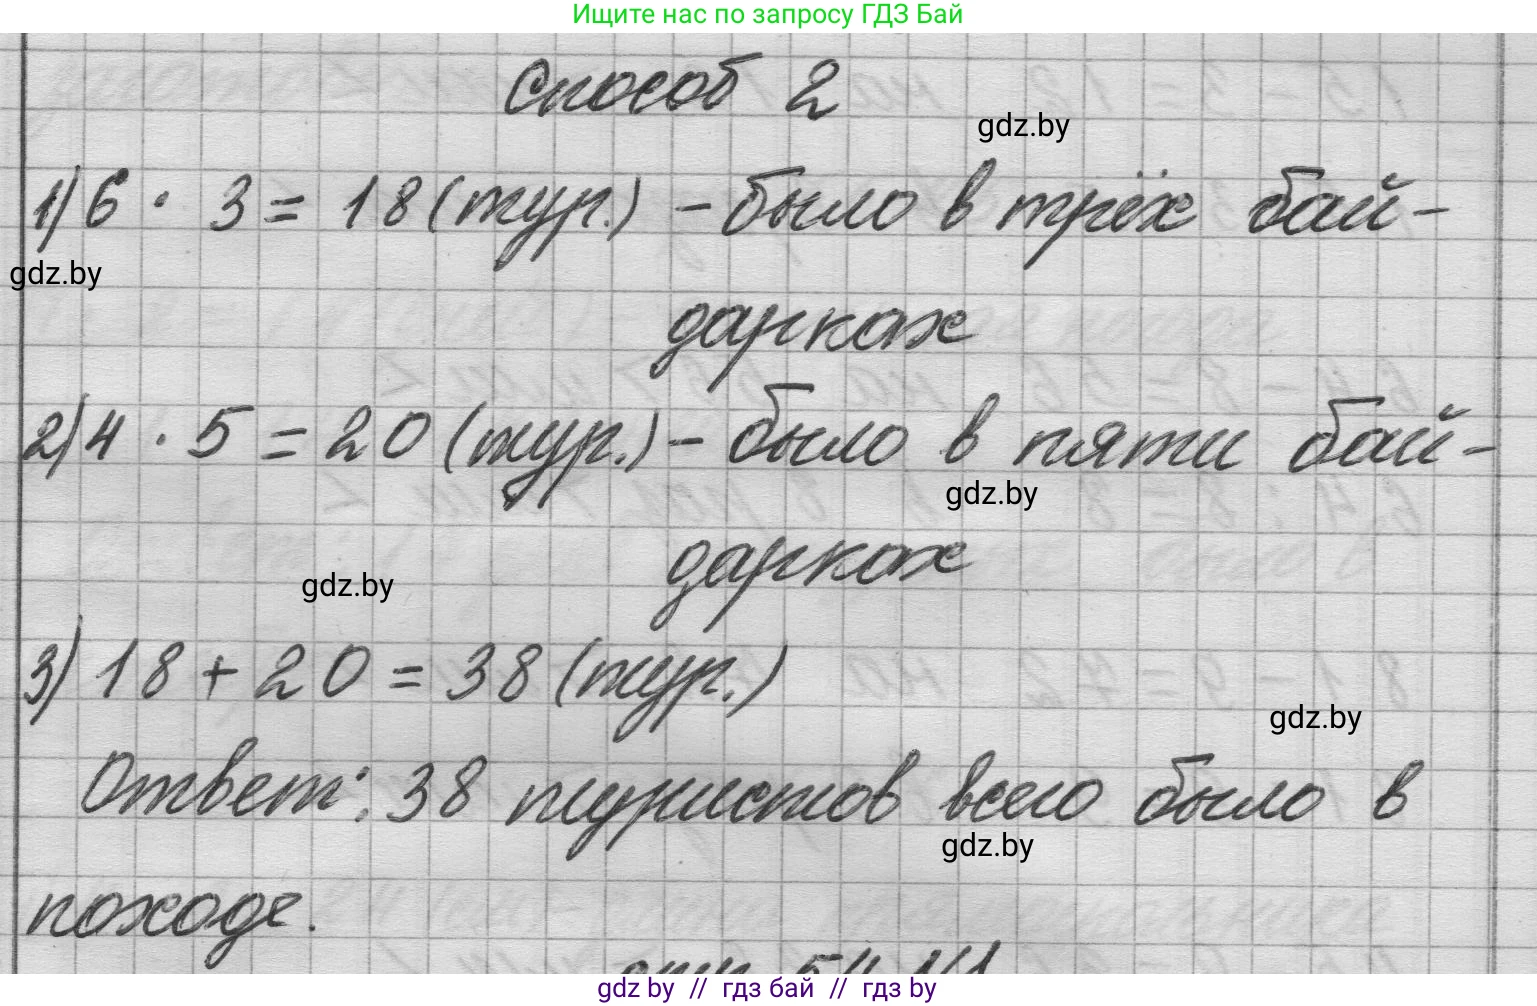 Ищите нас по запросу ГДЗ Бай
Способ 2
gdz.by
1) 6 · 3 = 18 (тур.) - было в трёх бай-
gdz.by
дарках
2) 4 · 5 = 20 (тур.) - было в пяти бай-
gdz.by
дарках
gdz.by
3) 18 + 20 = 38 (тур.)
gdz.by
Ответ: 38 туристов всего было в
gdz.by
походе.
gdz by // гдз бай // гдз by